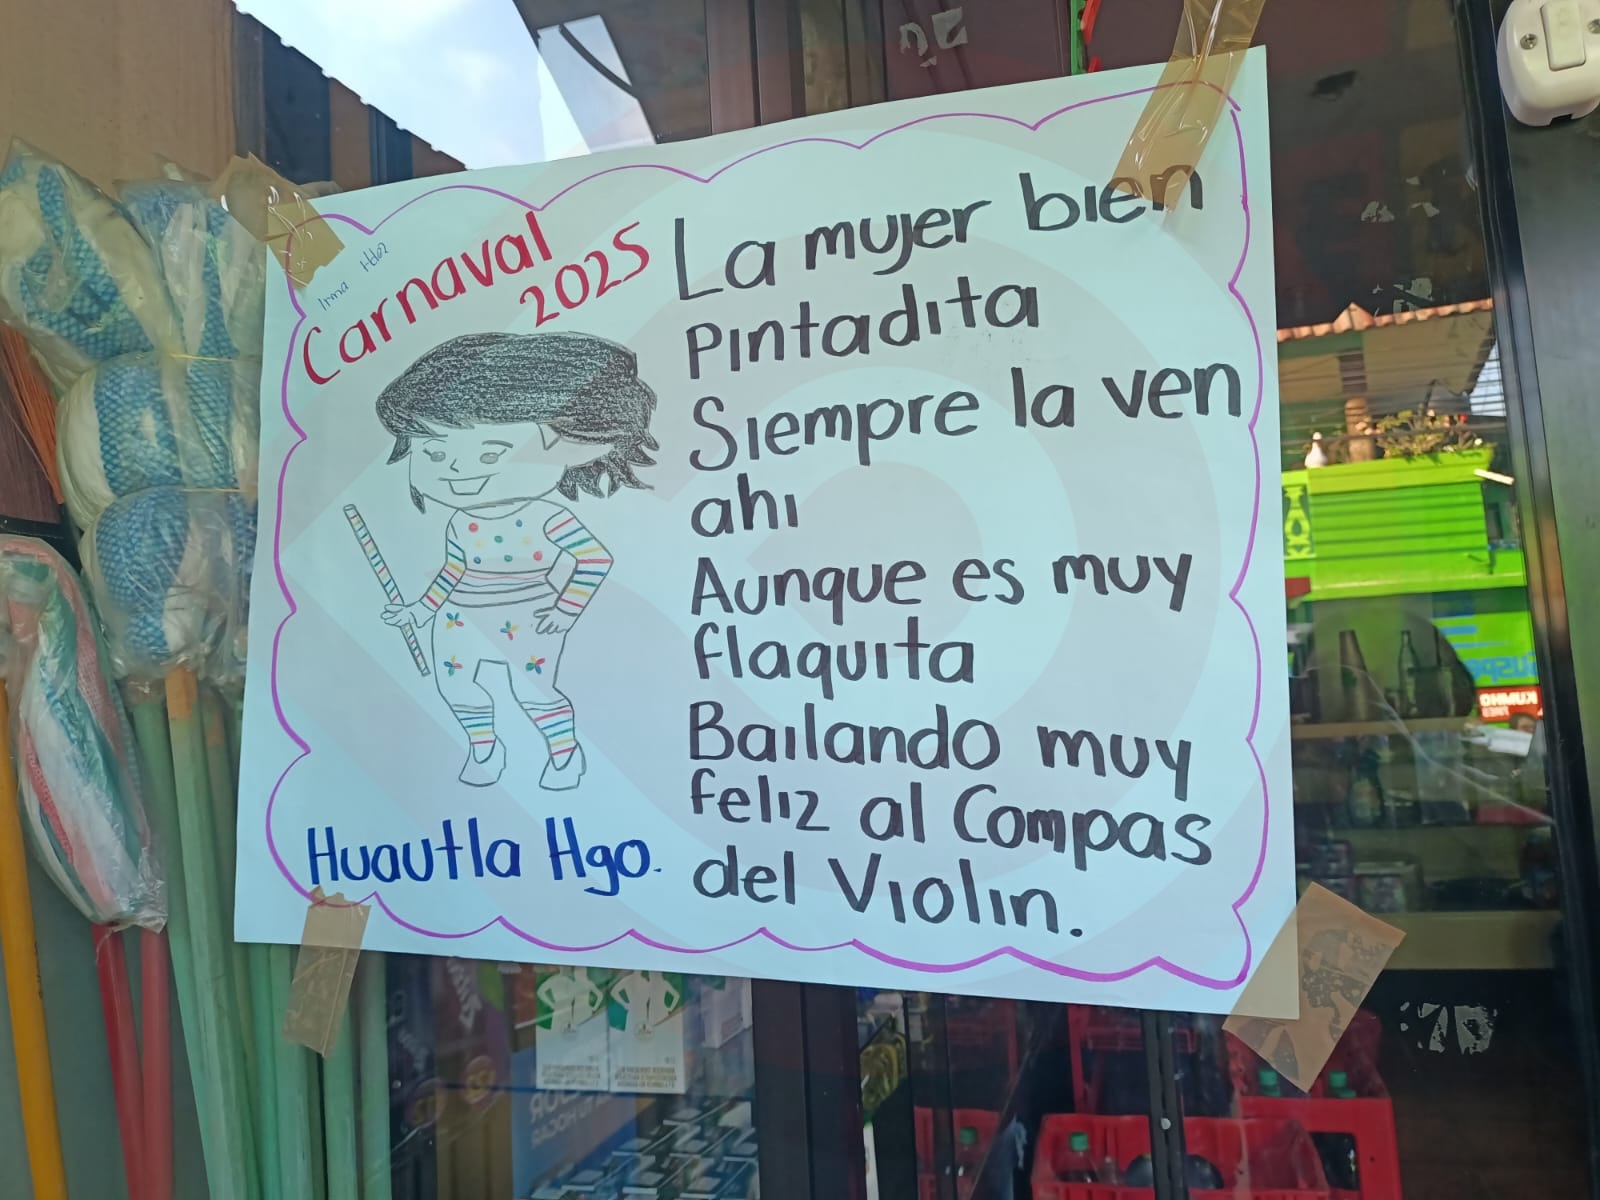 Irma Hdez
Carnaval
2025
La mujer bien
Pintadita
Siempre la ven
ahi
Aunque es muy
flaquita
Bailando muy
feliz al Compas
del Violin.
Huautla Hgo.